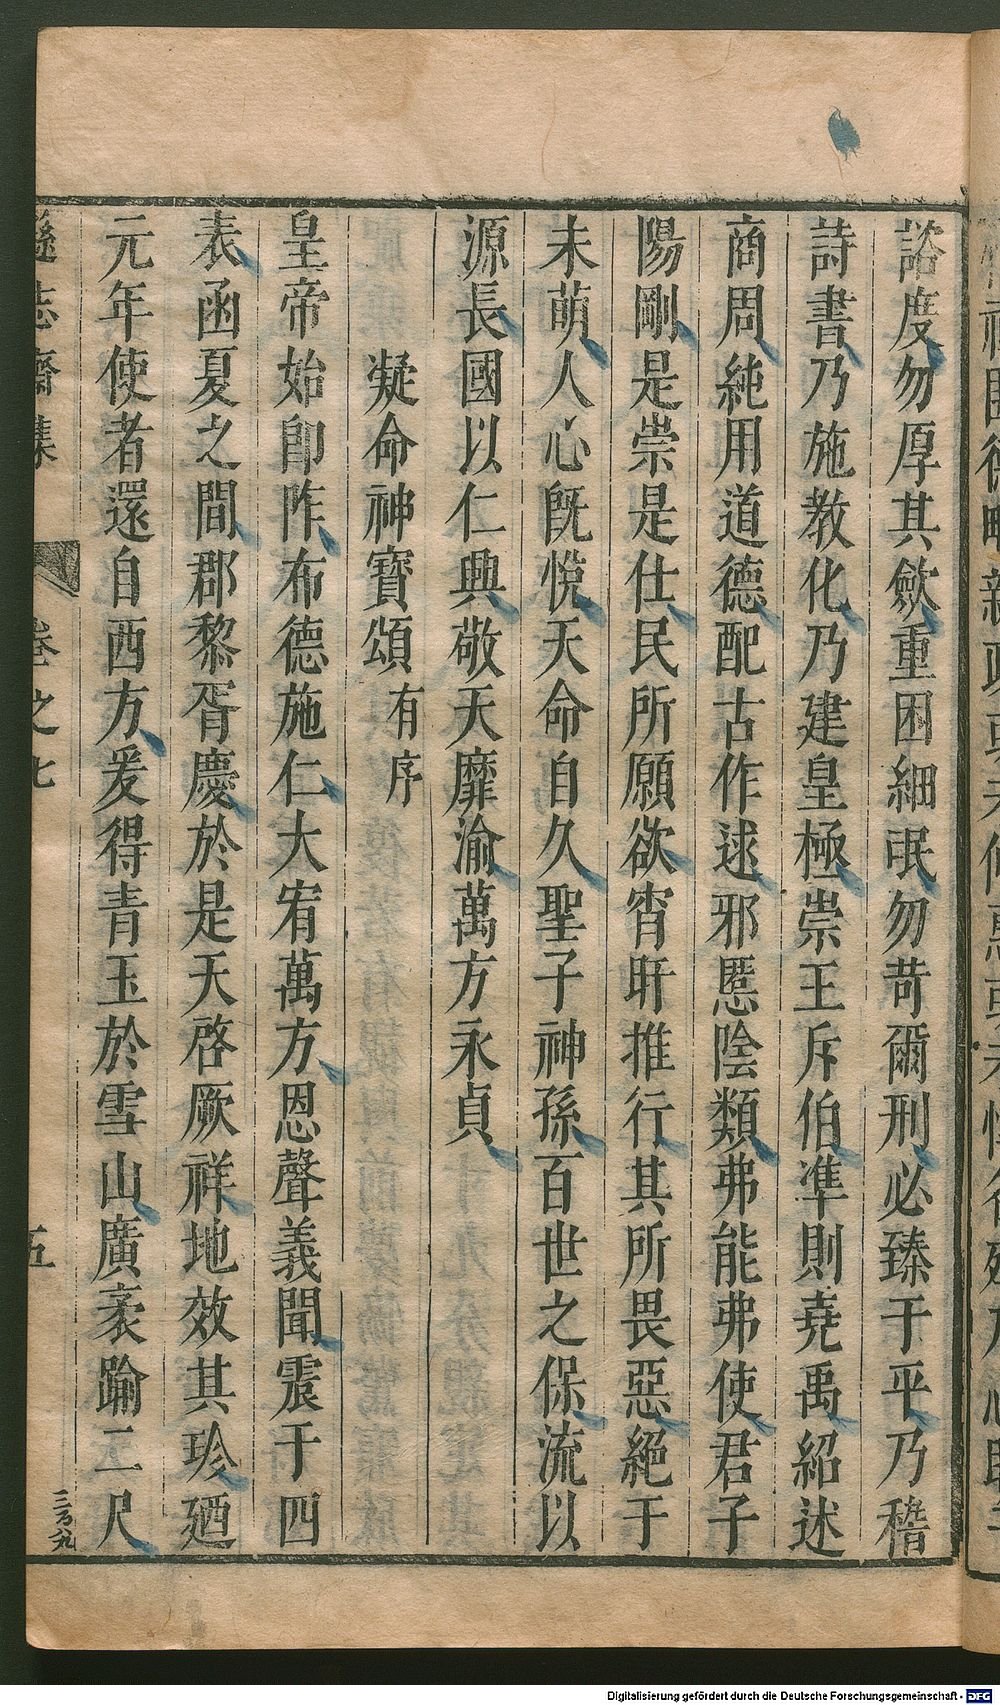 諮度勿厚其斂重困細民勿苛爾刑必臻于平乃稽
詩書乃施教化乃建皇極崇王斥伯準則堯禹紹述
商周純用道德配古作逑邪慝陰類弗能弗使君子
陽剛是崇是仕民所願欲宵旰推行其所畏惡絕于
未萌人心旣悅天命自久聖子神孫百世之保流以
源長國以仁興敬天靡渝萬方永貞
凝命神寶頌有序
皇帝始卽阼布德施仁大宥萬方恩聲義聞震于四
表函夏之間郡黎胥慶於是天啓厥祥地效其珍廼
元年使者還自西方爰得青玉於雪山廣袤踰二尺
遜志齋集 卷之七 五
三百九
Digitalisierung gefördert durch die Deutsche Forschungsgemeinschaft - DFG